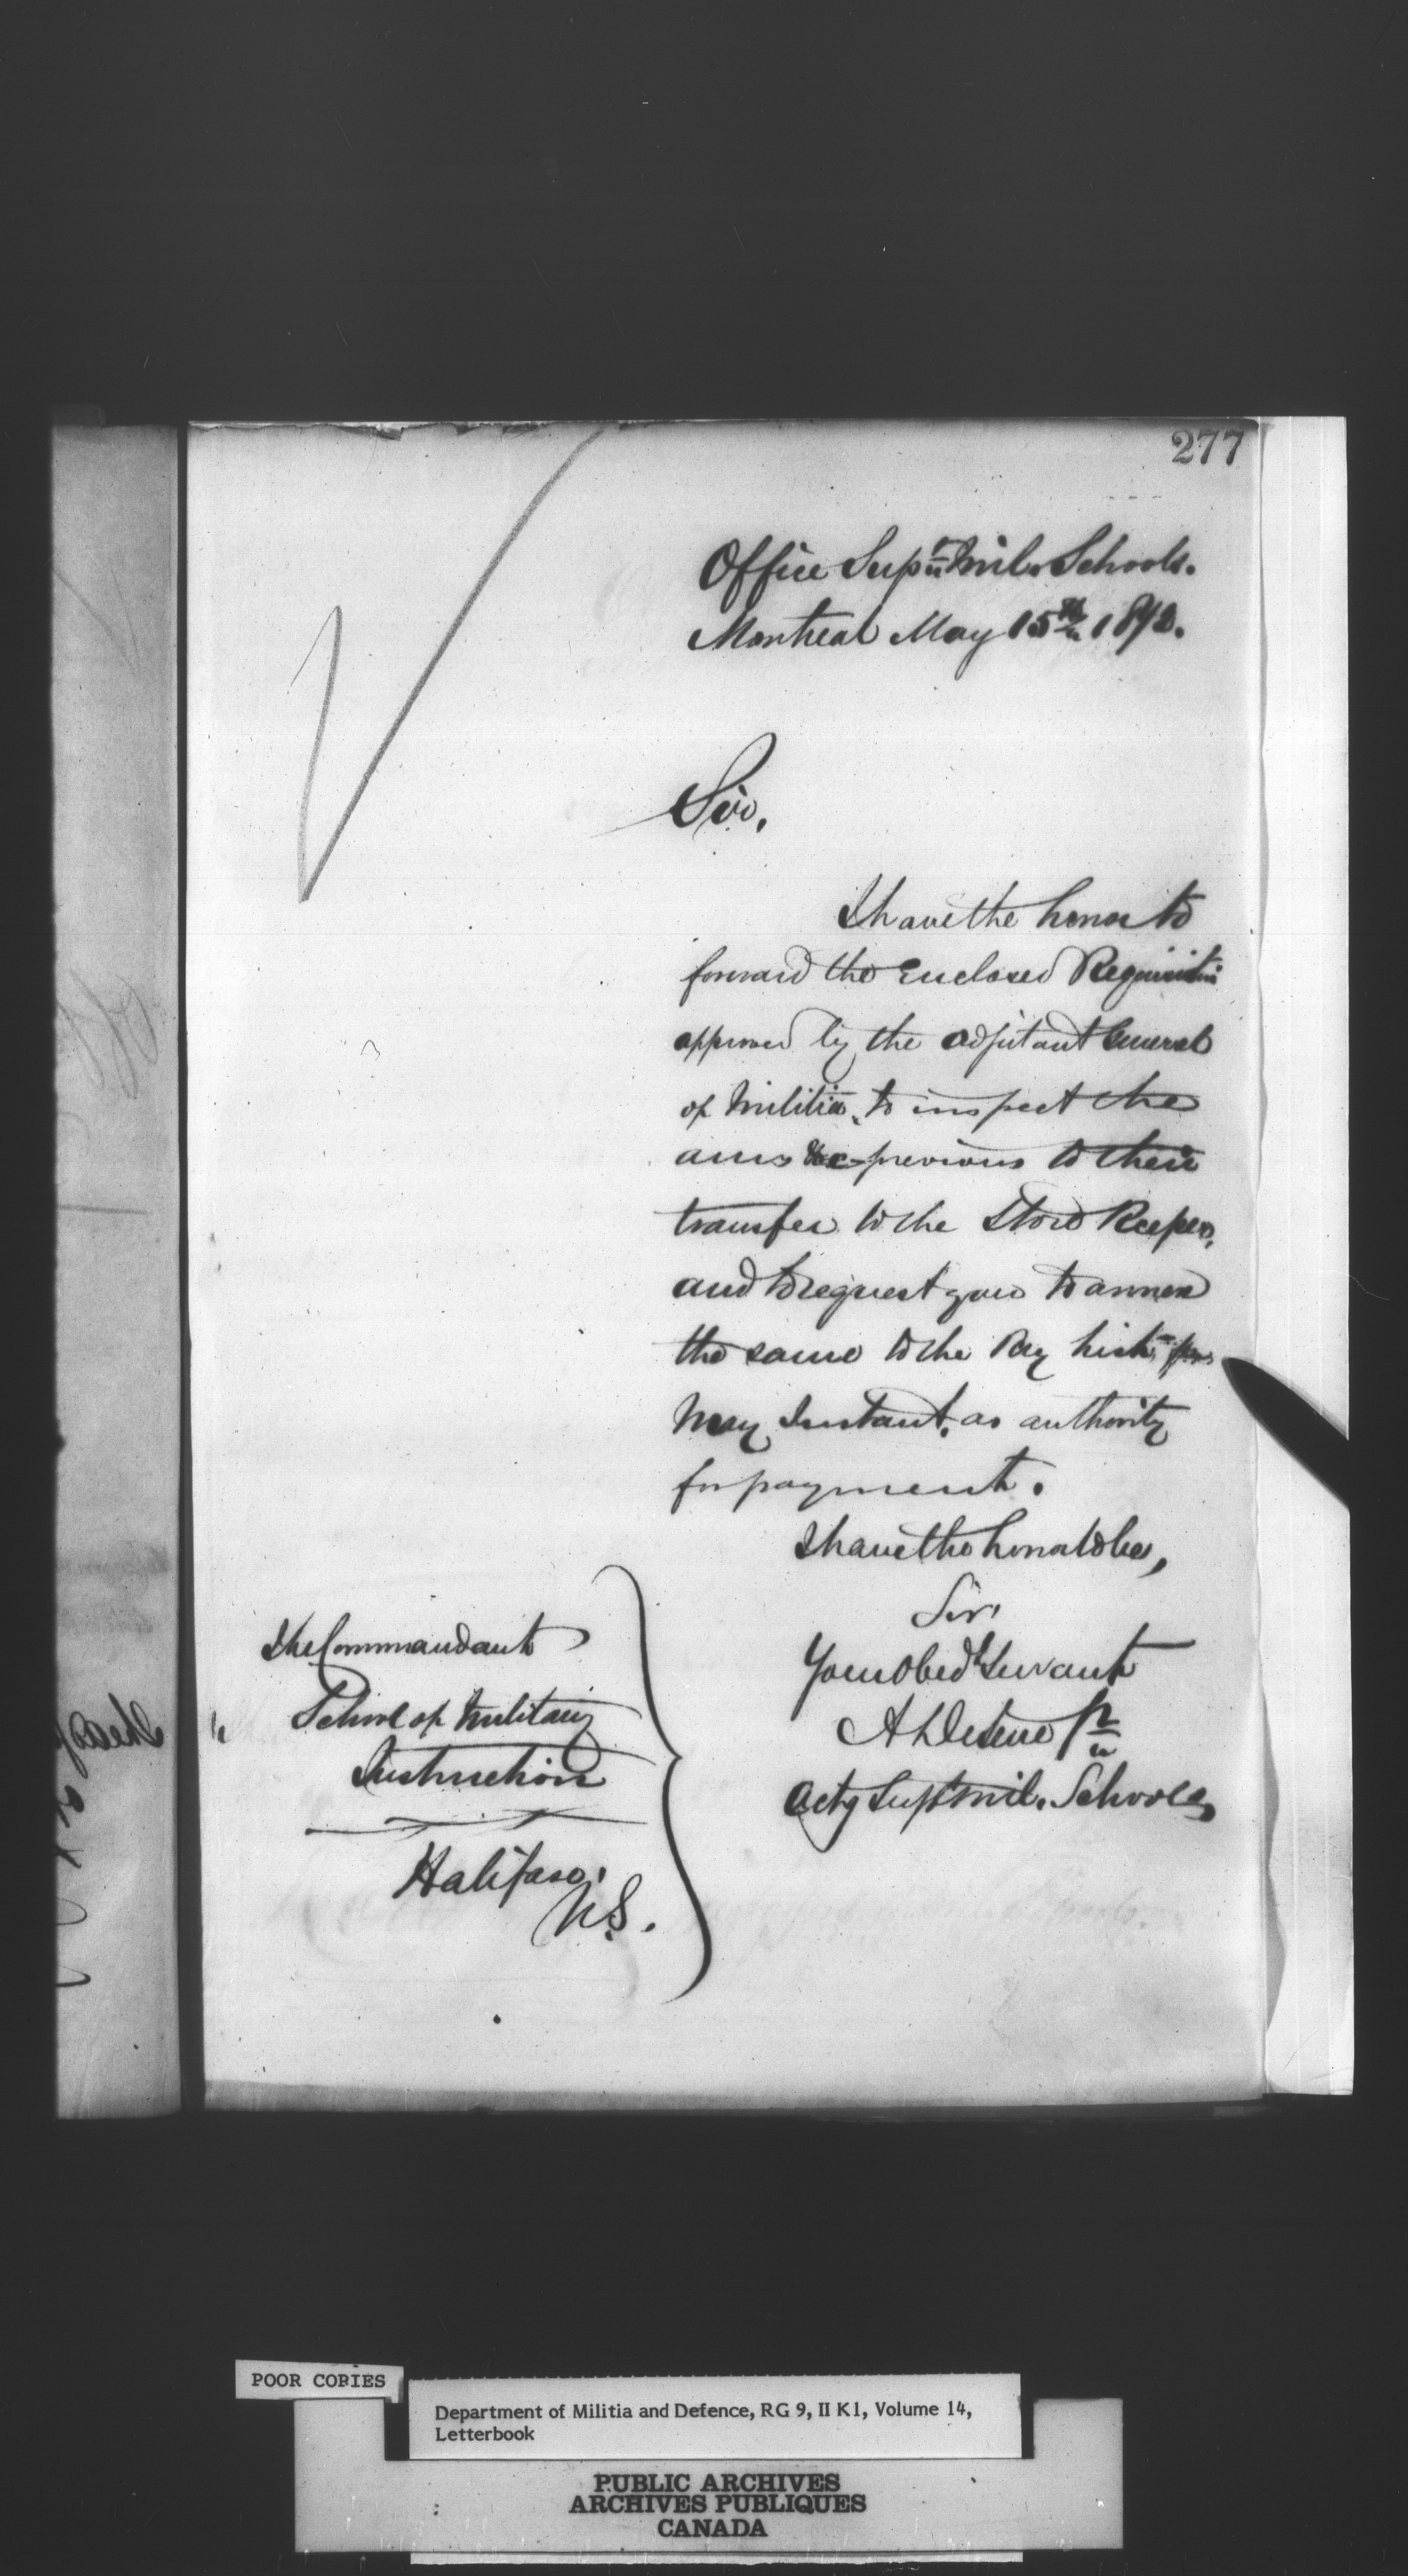 277
Office Supt Mil. Schools.
Montreal May 15th 1872.
Sir,
I have the honor to
forward the Enclosed Requisition
approved by the Adjutant General
of Militia, to inspect the
arms &c previous to their
transfer to the Store Keeper,
and to request you to annex
the same to the Pay List, for
May Instant, as authority
for payment.
I have the honor to be,
Sir,
Your Obedt Servant
Actg Supt Mil. Schools,
The Commandant
School of Military
Instruction
Halifax,
N.S.
POOR COPIES
Department of Militia and Defence, RG 9, II K1, Volume 14,
Letterbook
PUBLIC ARCHIVES
ARCHIVES PUBLIQUES
CANADA